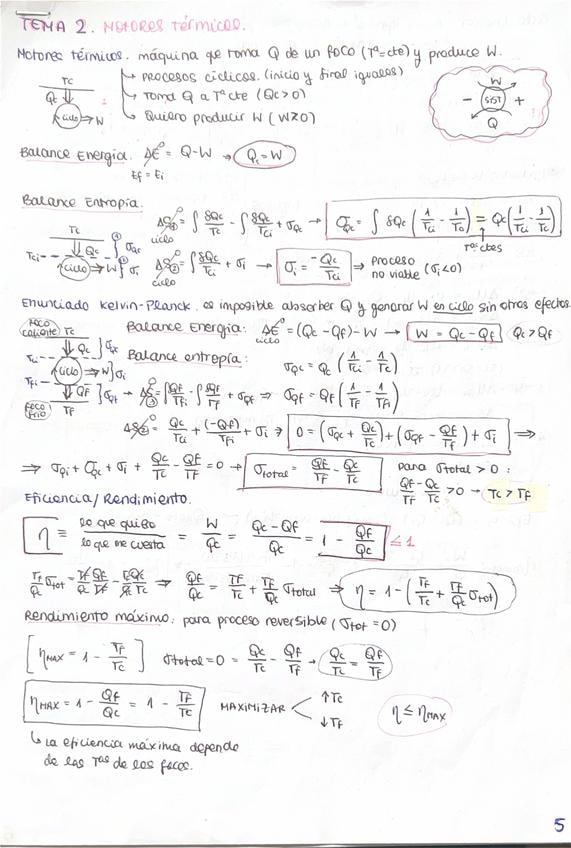 TEMA 2. MOTORES TÉRMICOS.
Motores térmicos. máquina que toma Q de un foco (Tª=cte) y produce W.
Tc
Qc
ciclo → W
↳ Procesos cíclicos. (inicio y final iguales)
↳ Toma Q a Tª cte (Qc>0)
↳ Quiero producir W (W≥0)
W
- SIST +
Q
Balance Energía. ΔE⁰ = Q-W → Qc = W
Ef = Ei
Balance Entropía.
Tc
Qc
Tci
ciclo → W
σQc
σi
ΔS⁰ = ∫ δQc/Tc - ∫ δQc/Tci + σQc → σQc = ∫ δQc (1/Tci - 1/Tc) = Qc (1/Tci - 1/Tc)
ciclo
Tª ctes
ΔS⁰ = ∫ δQc/Tci + σi → σi = -Qc/Tci ⇒ Proceso no viable (σi<0)
ciclo
Enunciado Kelvin-Planck. es imposible absorber Q y generar W en ciclo sin otros efectos.
foco caliente Tc
Qc
Tci
ciclo → W
Tfi
Qf
foco frío Tf
σQc
σi
σQf
Balance Energía: ΔE⁰ = (Qc - Qf) - W → W = Qc - Qf Qc > Qf
ciclo
Balance entropía: σQc = Qc (1/Tci - 1/Tc)
ΔS⁰ = ∫ Qf/Tfi - ∫ δQf/Tf + σQf ⇒ σQf = Qf (1/Tf - 1/Tfi)
ΔS⁰ = Qc/Tci + (-Qf)/Tfi + σi ⇒ 0 = (σQc + Qc/Tc) + (σQf - Qf/Tf) + σi ⇒
⇒ σQi + σQc + σi + Qc/Tc - Qf/Tf = 0 → σtotal = Qf/Tf - Qc/Tc
Para σtotal > 0 :
Qf/Tf - Qc/Tc > 0 → Tc > Tf
Eficiencia / Rendimiento.
η ≡ lo que quiero / lo que me cuesta = W/Qc = Qc - Qf / Qc = 1 - Qf/Qc ≤ 1
Tf/Qc σtot = Tf Qf/Qc Tf - Tf Qc/Qc Tc ⇒ Qf/Qc = Tf/Tc + Tf/Qc σtotal ⇒ η = 1 - (Tf/Tc + Tf/Qc σtot)
Rendimiento máximo: para proceso reversible (σtot = 0)
[ηMAX = 1 - Tf/Tc] σtotal = 0 = Qc/Tc - Qf/Tf → Qc/Tc = Qf/Tf
ηMAX = 1 - Qf/Qc = 1 - Tf/Tc MAXIMIZAR ↑Tc ↓Tf η ≤ ηMAX
↳ La eficiencia máxima depende
de las Tªs de los focos.
5